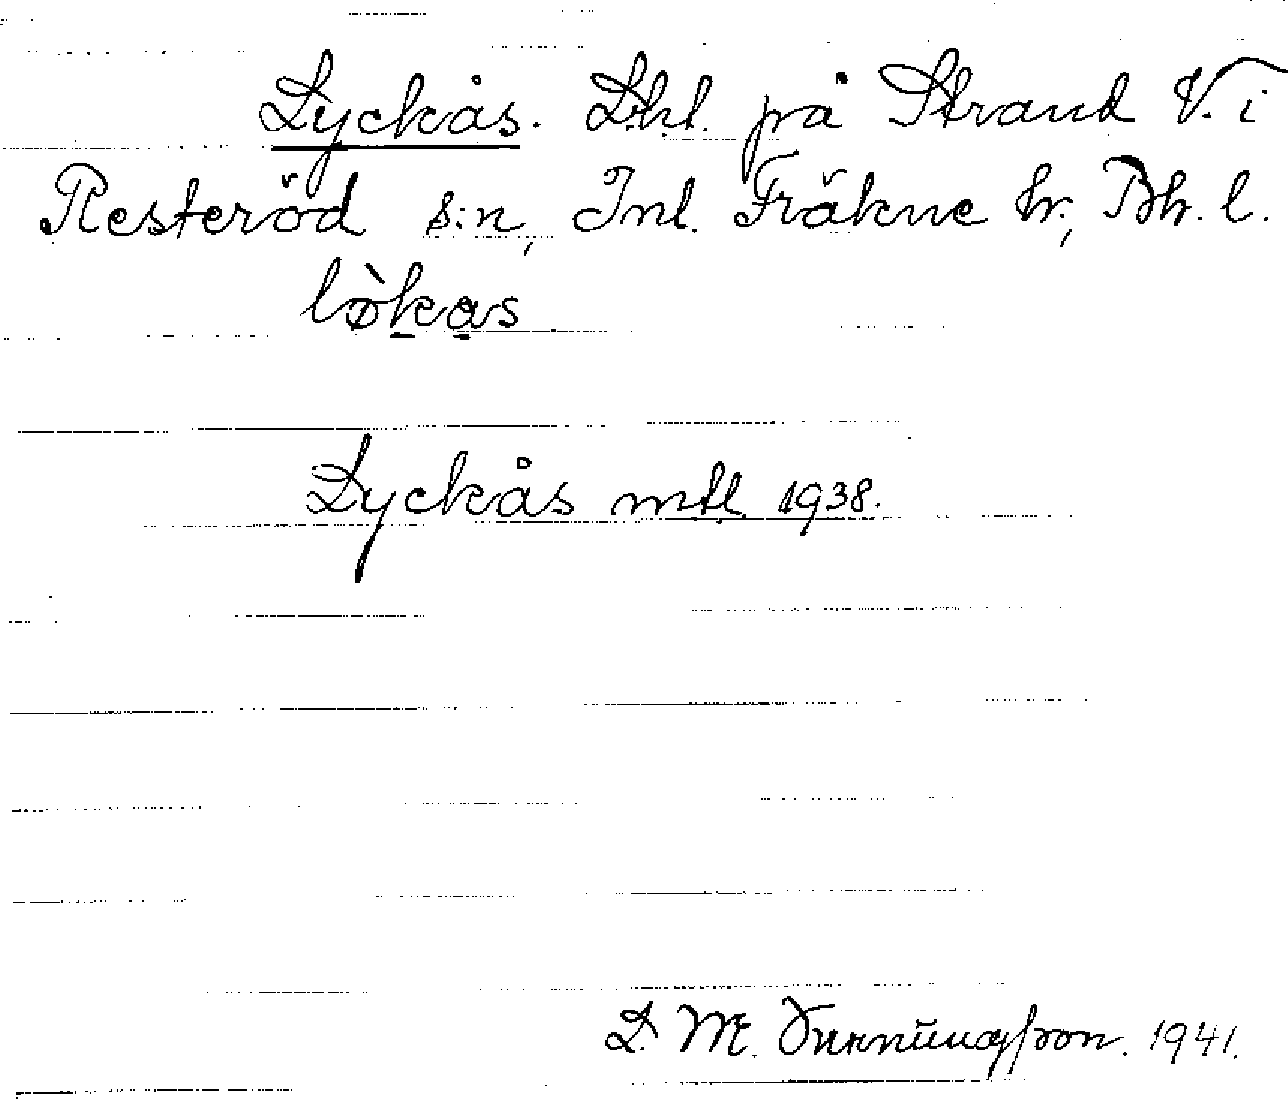 Lyckås. Lhl. på Strand V. i
Resteröd s:n, Inl. Fräkne hr., Bh. l.
lø̀kas
Lyckås mtl 1938.
D. M. 1941.